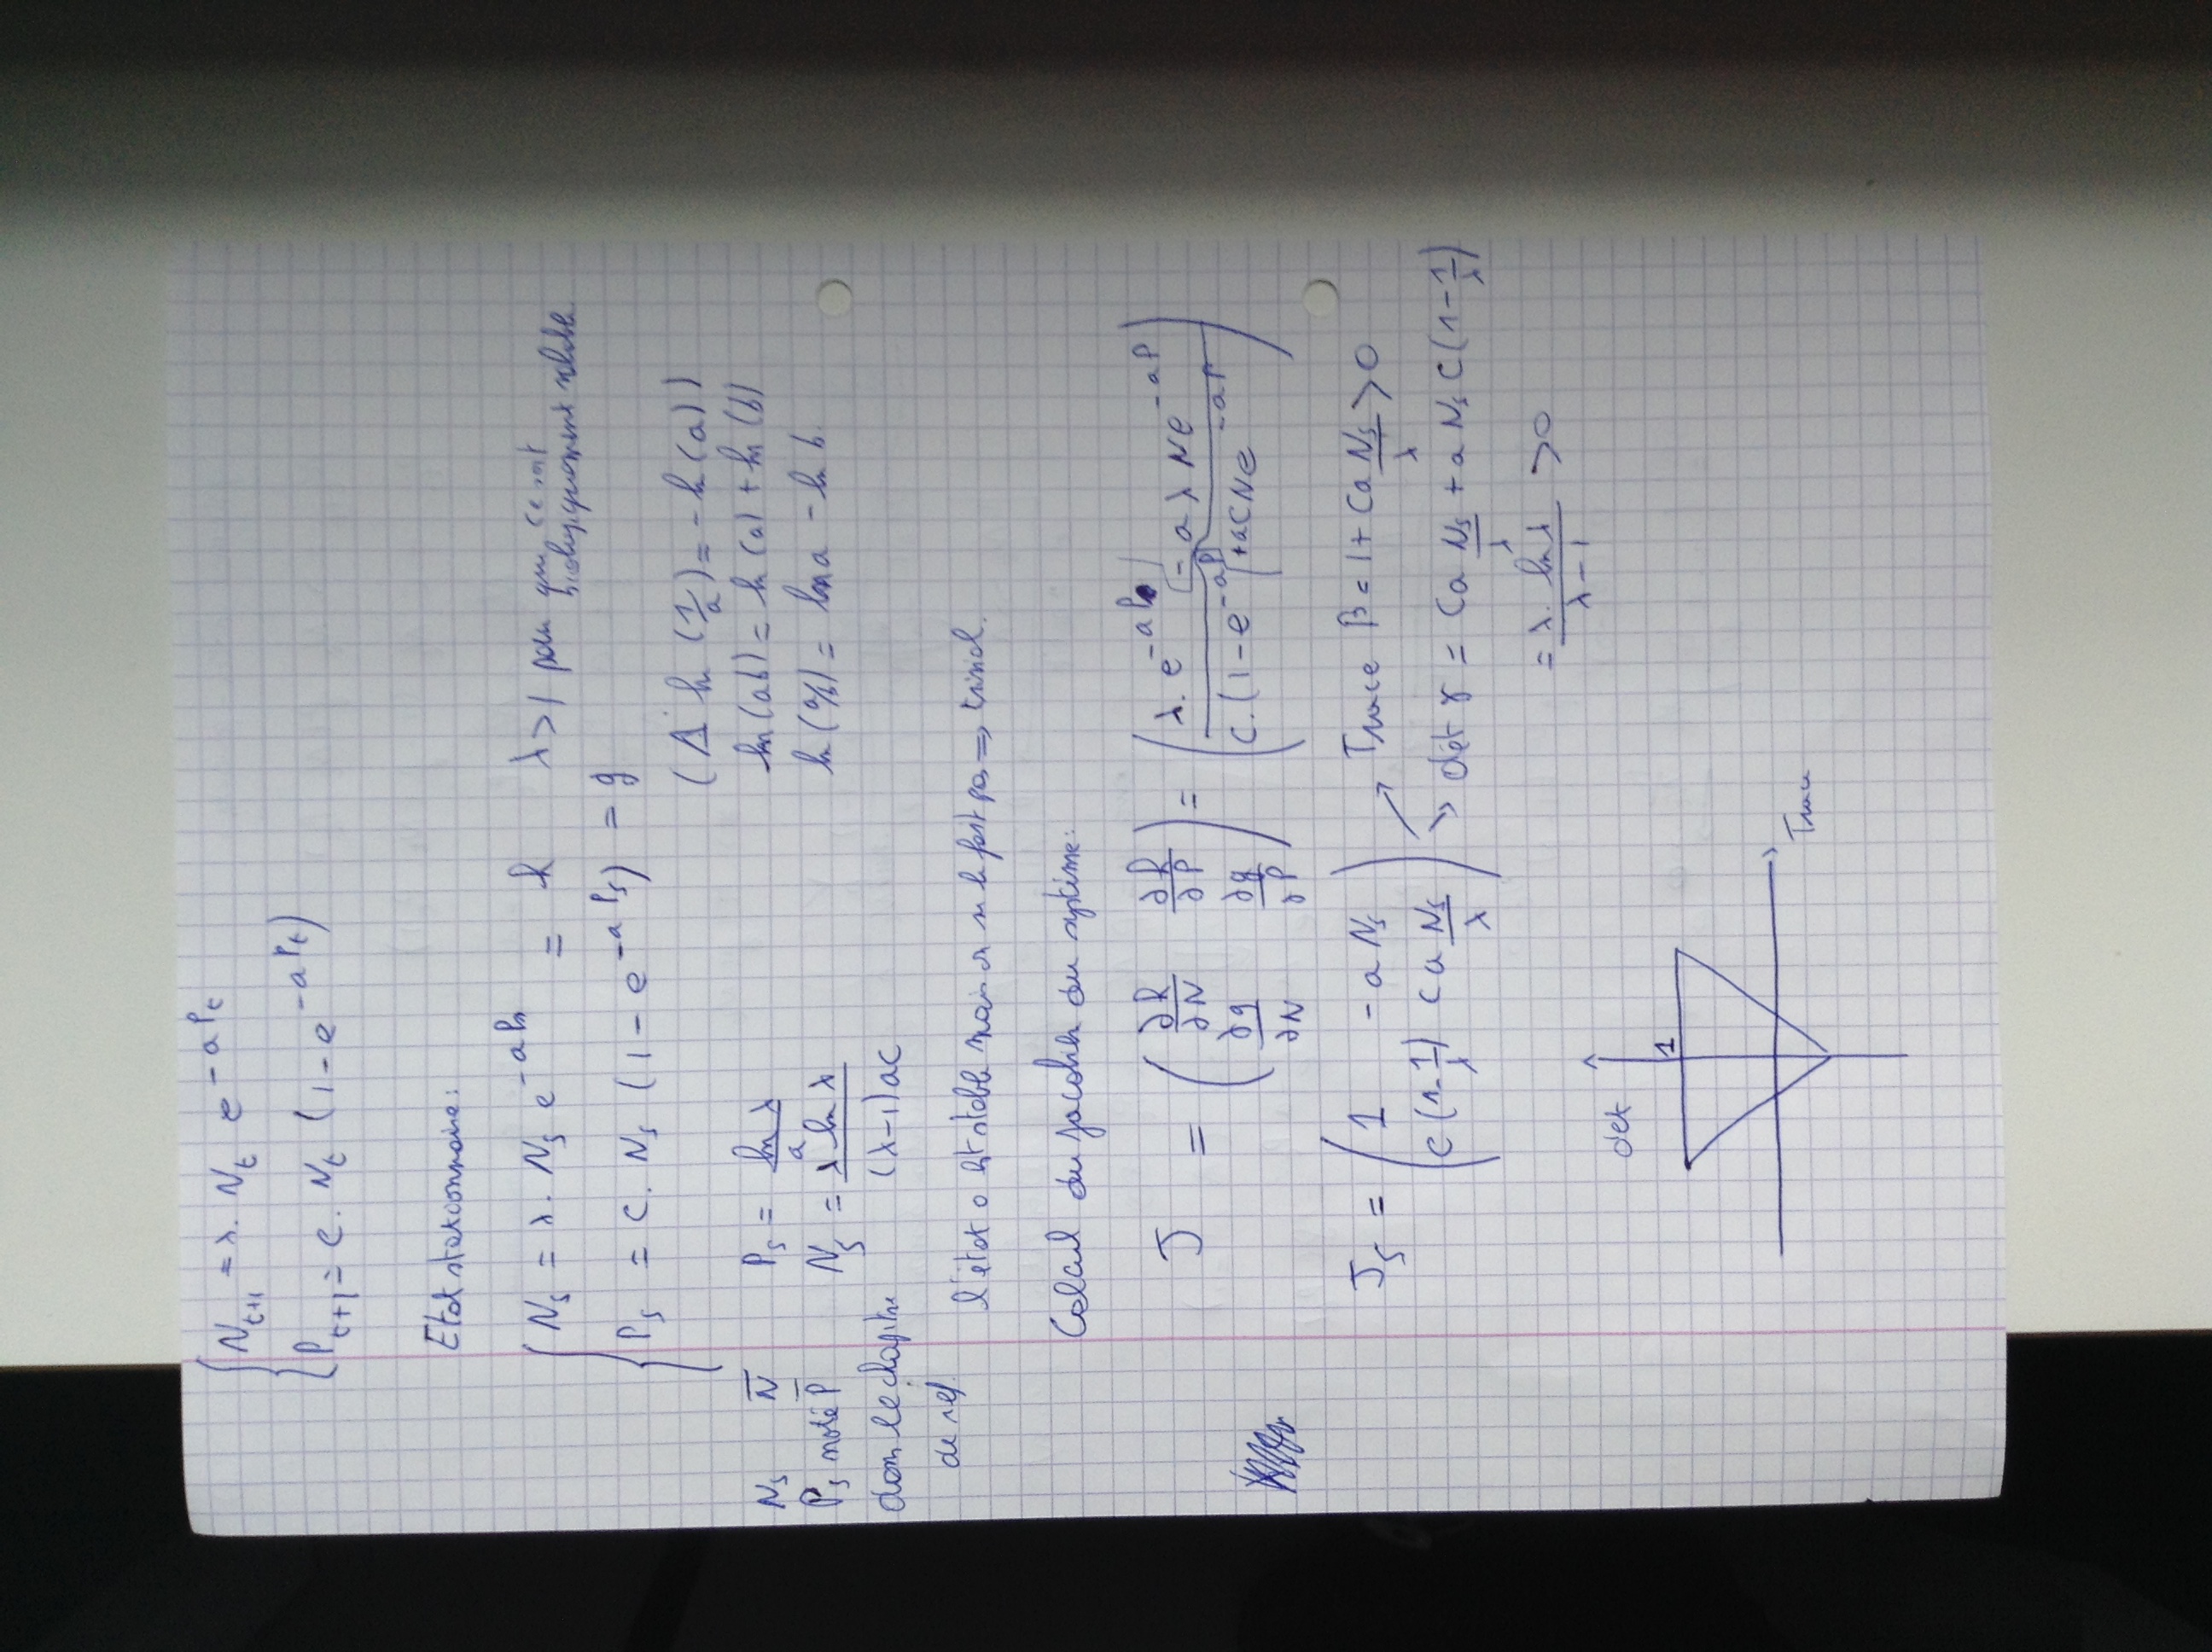 N_{t+1} = λ. N_t e^{-aP_t}
P_{t+1} = c. N_t (1 - e^{-aP_t})
Etat stationnaire:
N_s = λ. N_s e^{-aP_s} = f λ>1 pour que ce soit
biologiquement
P_s = c. N_s (1 - e^{-aP_s}) = g
(Δ ln (1/a) = - ln(a))
N_s N̄ P_s = ln λ / a ln(ab) = ln(a) + ln(b)
P_s noté P̄ N_s = λ ln λ / (λ-1)ac ln(a/b) = ln a - ln b.
dans le chapitre
de ref.
l'état 0 est stable mais on ne le fait pas => trivial.
Calcul du jacobien du système:
J = (∂f/∂N ∂f/∂P ∂g/∂N ∂g/∂P) = (λ. e^{-aP} -aλNe^{-aP} c.(1-e^{-aP}) +acNe^{-aP})
J_s = (1 -aN_s c(1-1/λ) ca N_s/λ) → Trace β = 1 + ca N_s/λ >0
→ det γ = ca N_s/λ + aN_s c(1-1/λ)
= λ. ln λ / λ-1 >0
det
1
Trace